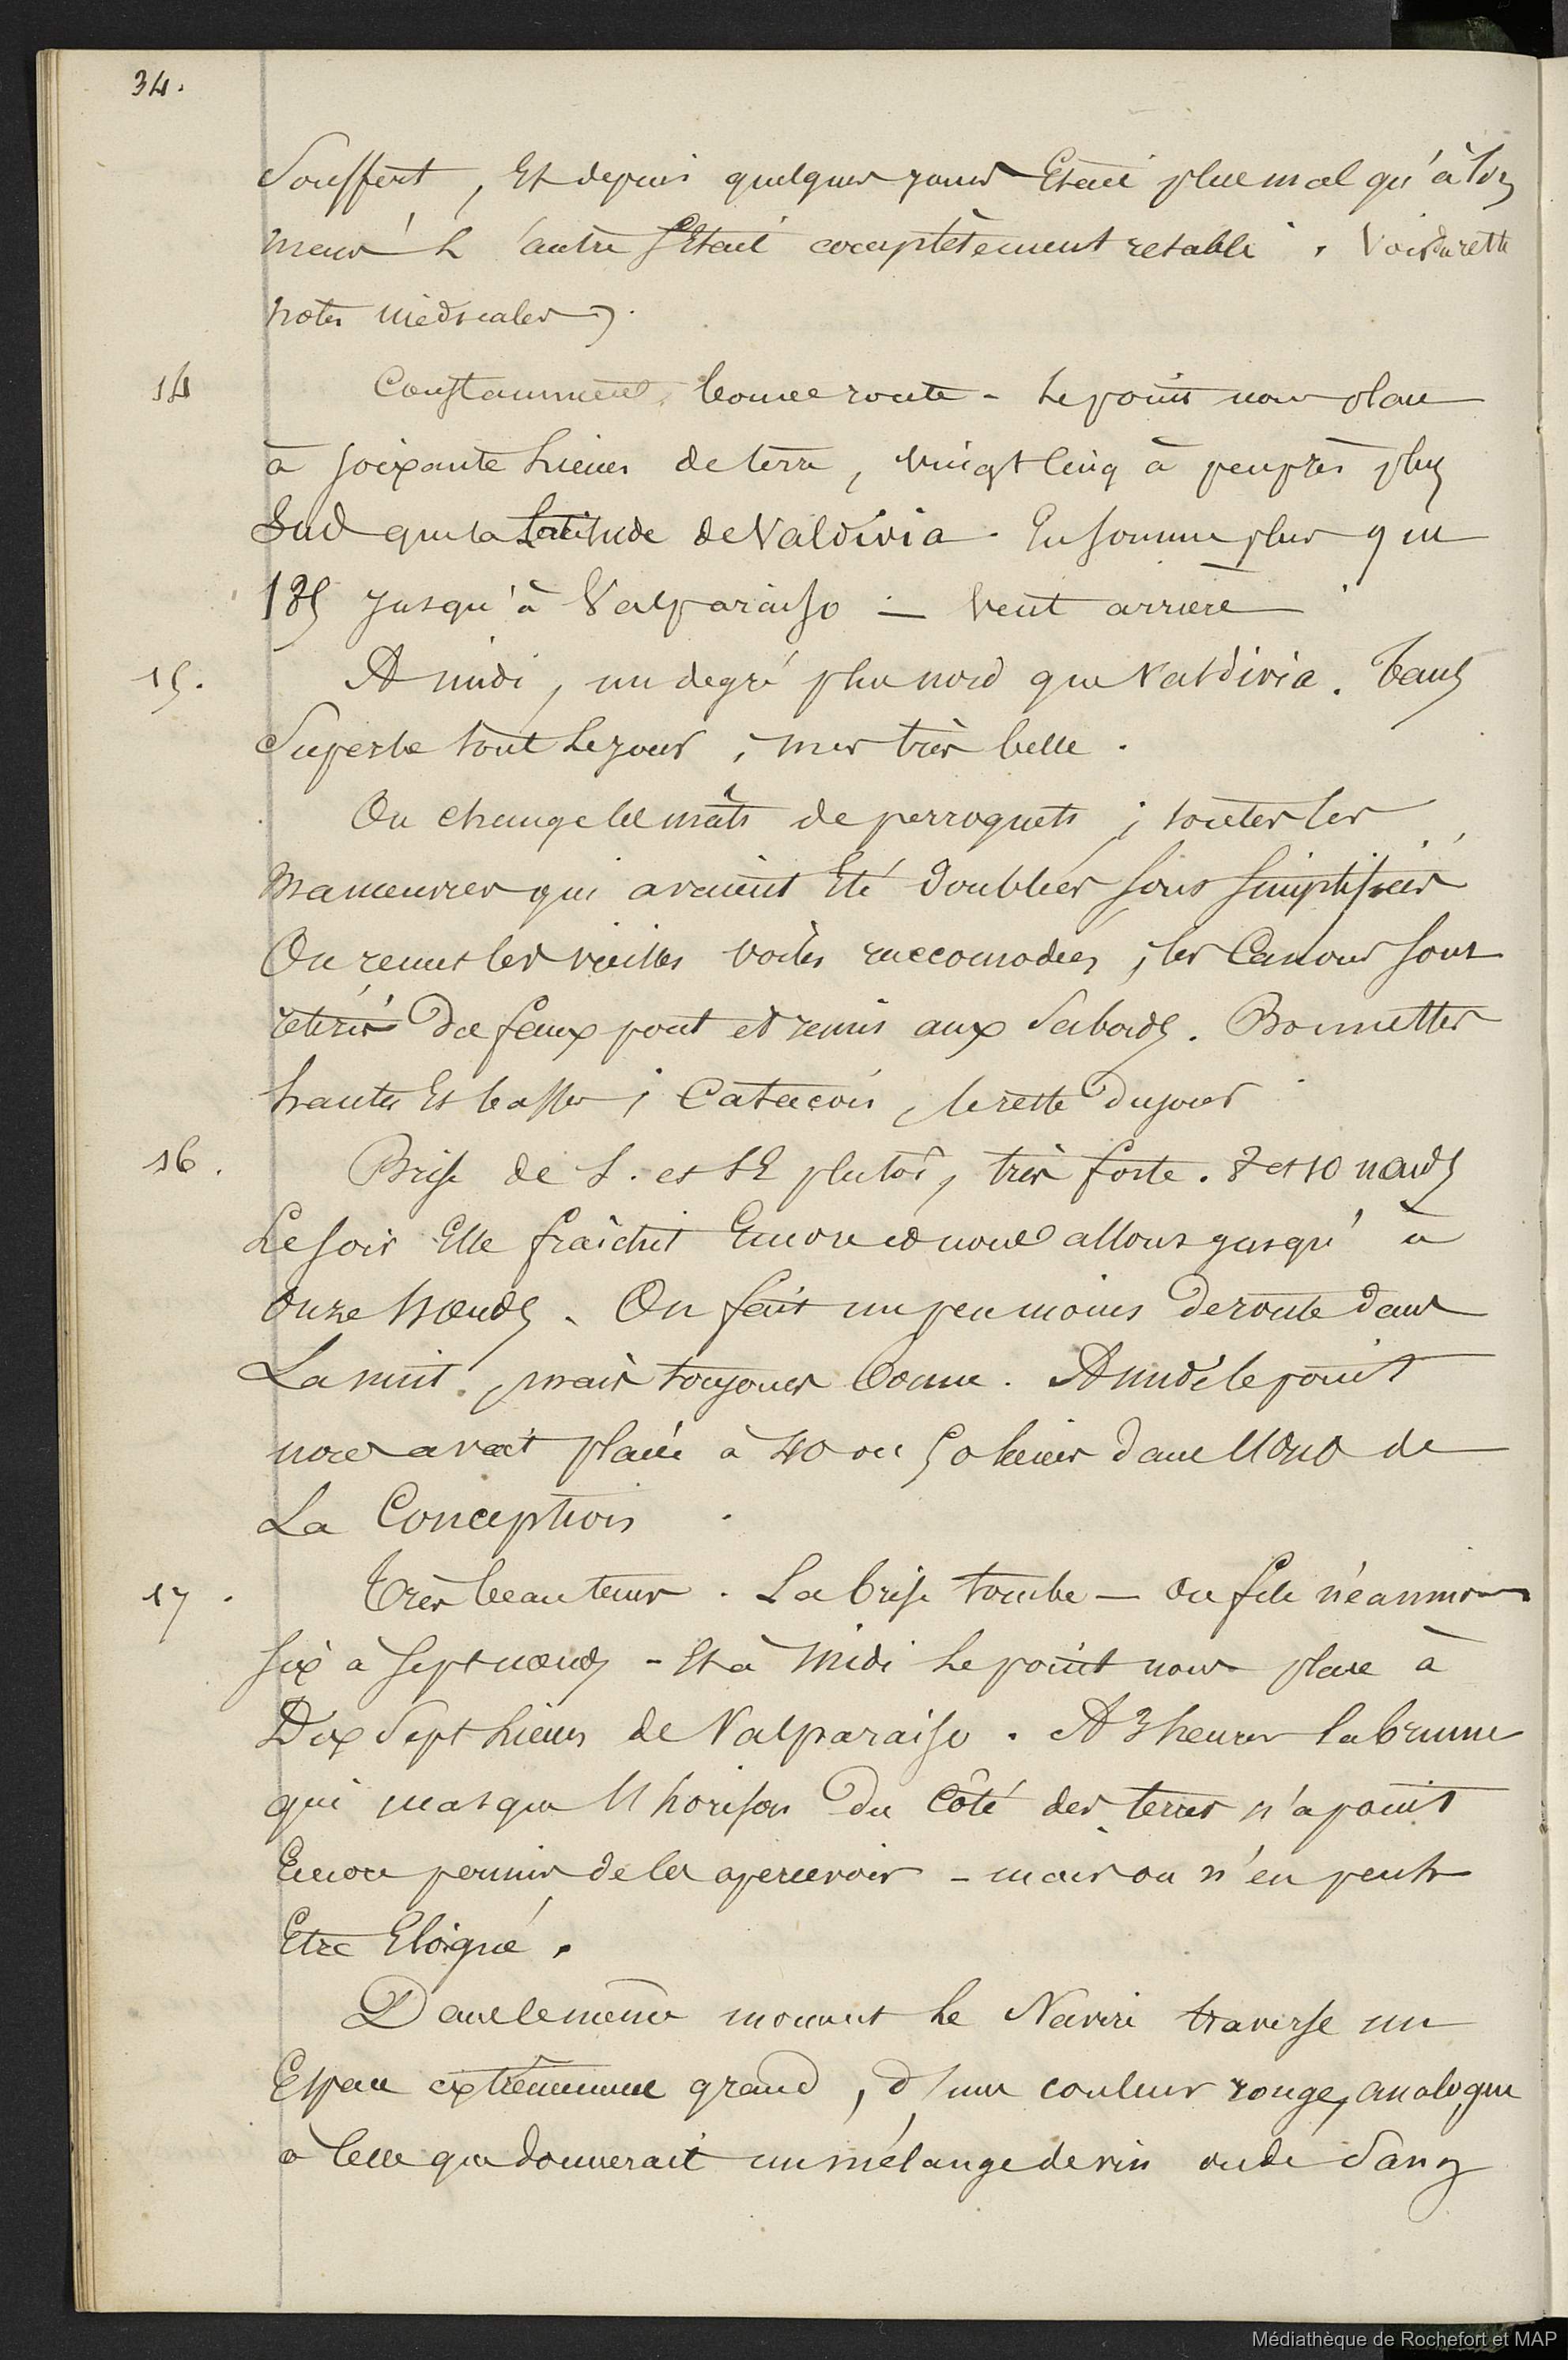 34.
Souffert, Et depuis quelques jours Etait plus mal qu'à l'or
meur L'autre s'était complètement rétabli. Voir
notes médicales).
14 Constamment bonne route - Le point nous place
à soixante Lieues de terre, vingt cinq à peu près plus
Sud que la Latitude de Valdivia. En somme plus que
185 jusqu'à Valparaiso - Vent arrière
15. A midi, un degré plus nord que Valdivia. Tems
Superbe tout le jour, mer très belle.
On change les mâts de perroquets ; toutes les
manoeuvres qui avaient Eté doublées sont simplifiées
On remet les vieilles voiles raccomodées ; les Canons sont
retirés du faux pont et remis aux Sabords. Bonnettes
hautes Et basses ; Catacois, le reste du jour
16. Brise de S. et SE plutôt, très forte. 8 et 10 nœuds
Le soir Elle fraîchit Encore et nous allons jusqu'à
Onze Nœuds. On fait un peu moins de route dans
La nuit, mais toujours bonne. A midi le point
nous avait placé à 40 ou 50 lieues dans l'ONO de
La Conception.
17. Très beau tems. La brise tombe - On file néanmoins
six à sept nœuds - Et à Midi Le point nous place à
Dix Sept Lieues de Valparaiso. A 3 heures la brume
qui masque l'horison du Côté des terres n'a point
Encore permis de les apercevoir - mais on n'en peut
Etre Eloigné.
Dans le même moment Le Navire traverse un
Espace extrêmement grand, d'une couleur rouge, analogue
à Celle que donnerait un mélange de vin ou de Sang
Médiathèque de Rochefort et MAP